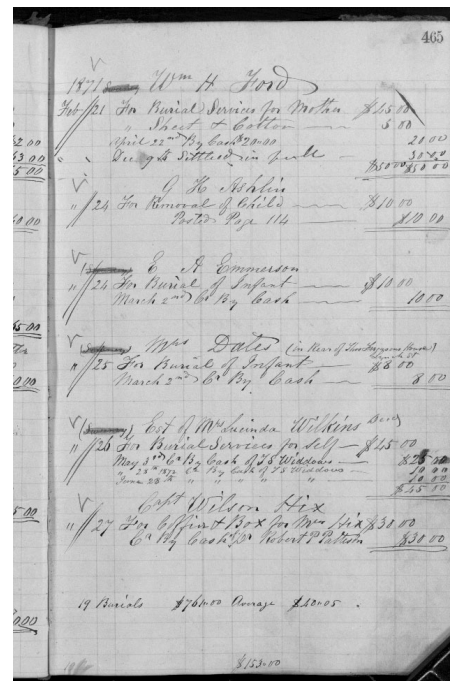 465
1871 Wm H Ford
Feb 21 For Burial Services for Mother $45.00
" Sheet & Cotton 5 00
April 22nd By Cash $20.00 20 00
Dec 9th Settled in full 30.00
$50.00 $50.00
G H Ashlin
" 24 For Removal of Child $10.00
Posted Page 114 $10.00
E A Emmerson
" 24 For Burial of Infant $10.00
March 2nd Cr By Cash 10 00
Mrs Dates (in Rear of House)
" 25 For Burial of Infant $8.00
March 2nd Cr By Cash 8 00
Est of Mrs Lucinda Wilkins Decd
" 26 For Burial Services for Self $45.00
May 3rd Cr By Cash of T S Widdows $25.00
28th 1872 Cr By Cash of T S Widdows 10 00
June 28th " " " " " 10 00
$45 00
Capt Wilson Hix
" 27 For Coffin & Box for Mrs Hix $30.00
Cr By Cash Robert P Patteson $30.00
19 Burials $761.00 Average $40.05
$153.00